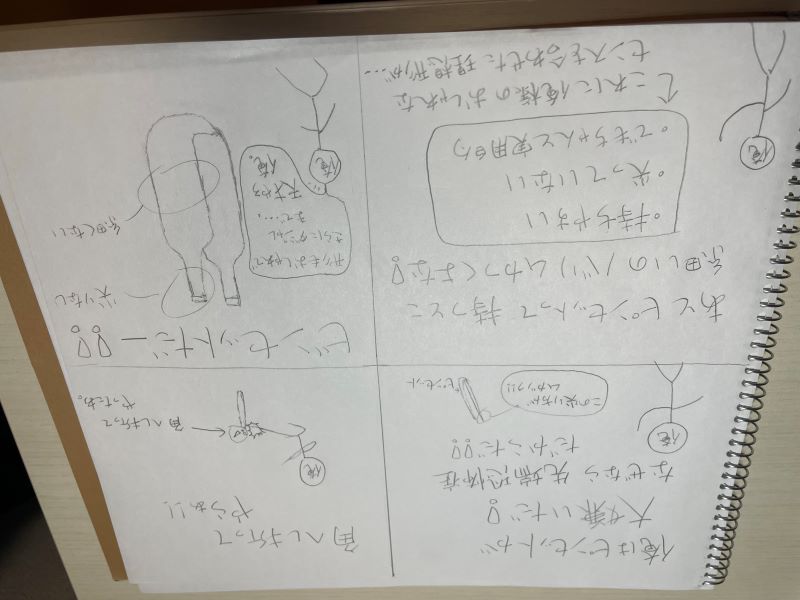 俺はピンセットが
大嫌いだ!
なぜなら 先端恐怖症
だからだ!!
俺
この尖り方が
ムカつク!!
ピンセット
角へし折って
やらぁ!!
俺
角へし折って
やったわ。
あと ピンセットって 持つとこ
細いの バリ ムカつくよな!
・持ちやすい
・尖っていない
・でもちゃんと実用的
俺
↑これに俺様のおしゃれな
センスを合わせた 理想形が…
ビンセットだー!!
尖りなし
細くない
形もおしゃれで
さらにダジャレ
まで…。
天才やろ
俺。
俺